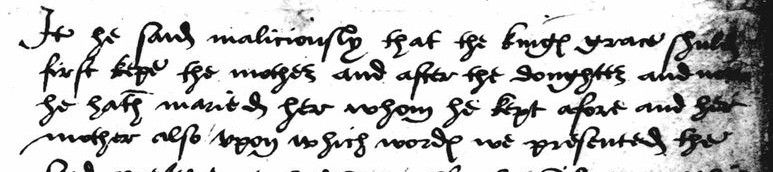 It he said maliciously that the kinges grace shuld
first kepe the mother and after the doughter and now
he hath maried her whom he kept afore and her
mother also upon which wordes we presented the